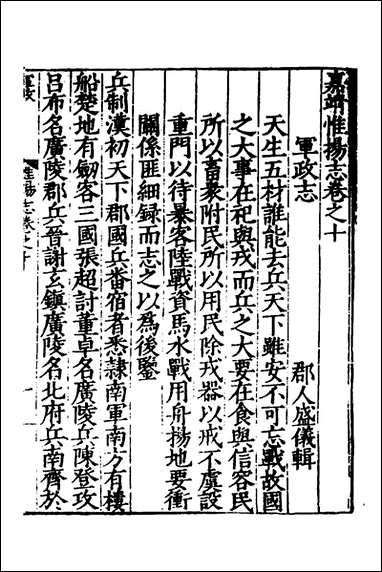 嘉靖惟揚志卷之十
軍政志 郡人盛儀輯
天生五材誰能去兵天下雖安不可忘戰故國
之大事在祀與戎而兵之大要在食與信容民
所以畜衆附民所以用民除戎器以戒不虞設
重門以待暴客陸戰資馬水戰用舟揚地要衝
關係匪細録而志之以爲後鑒
兵制漢初天下郡國兵番宿者悉隷南軍南方有樓
船楚地有劒客三國張超討董卓名廣陵兵陳登攻
吕布名廣陵郡兵晉謝玄鎮廣陵名北府兵南齊於
惟揚志卷之十